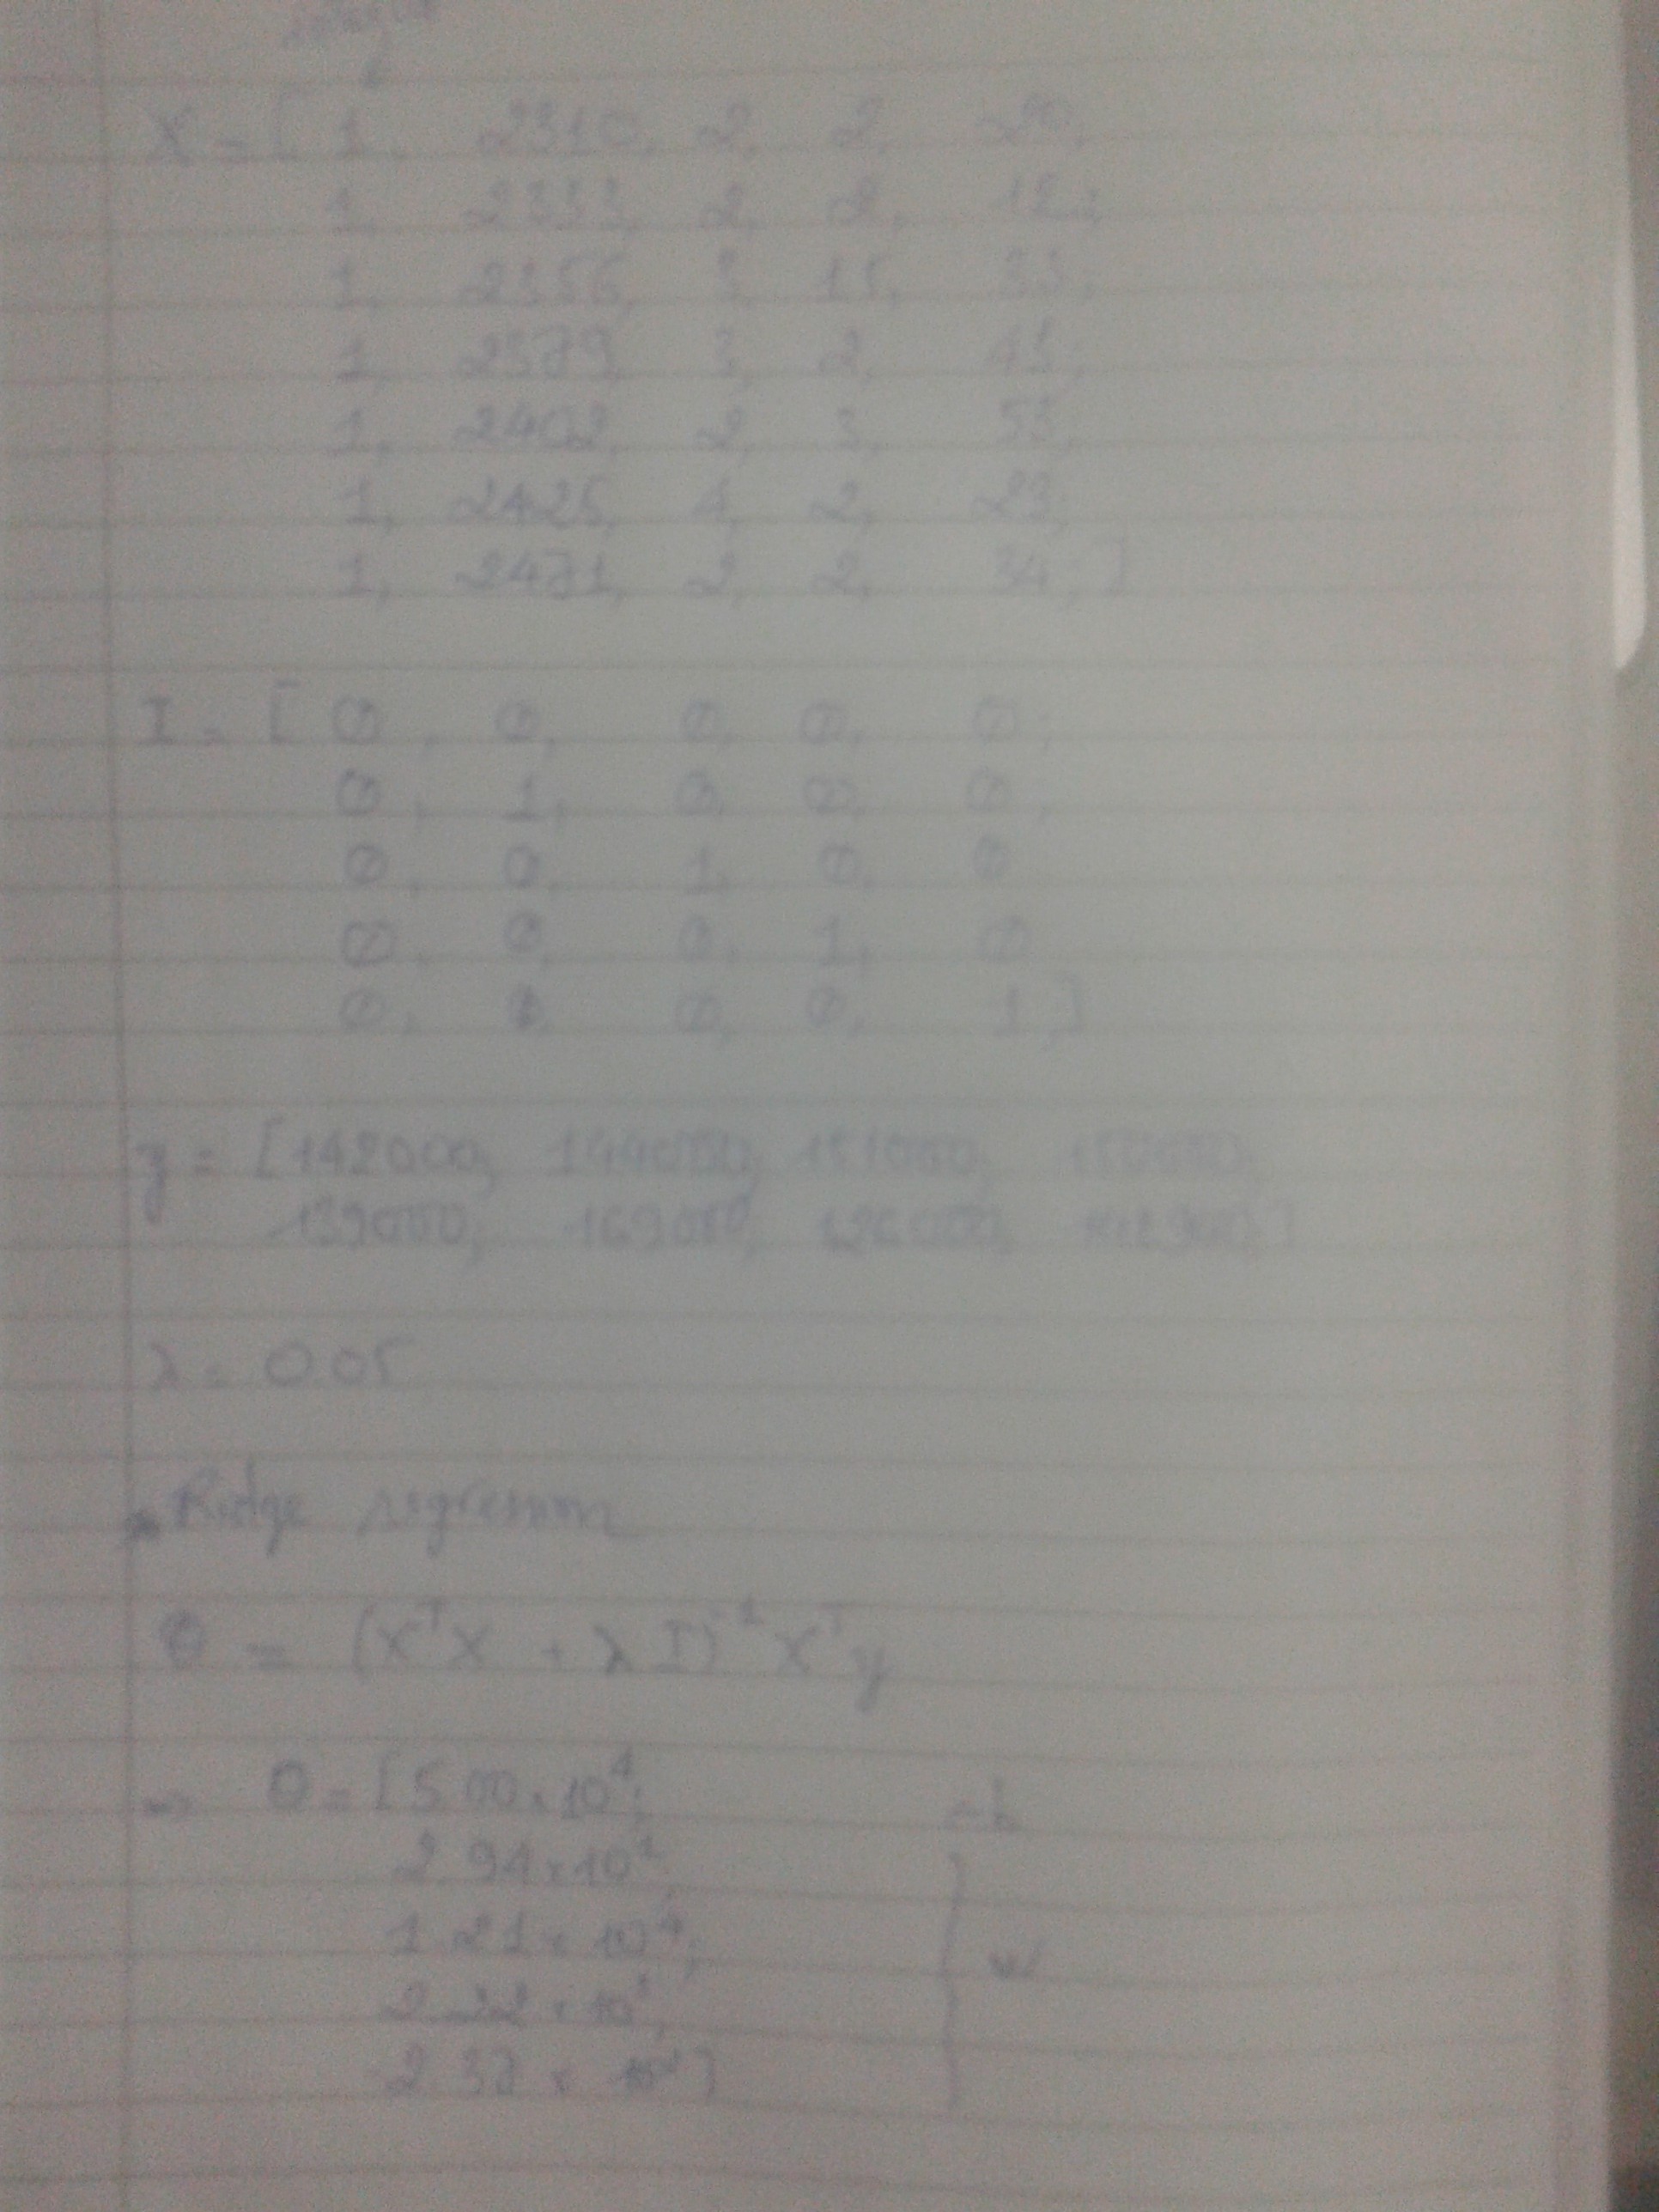 X = [ 1, 2310, 2, 2, 20;
1, 2333, 2, 2, 12;
1, 2356, 3, 1.5, 33;
1, 2379, 3, 2, 43;
1, 2402, 2, 3, 53;
1, 2425, 4, 2, 23;
1, 2471, 2, 2, 34, ]
I = [ 0, 0, 0, 0, 0;
0, 1, 0, 0, 0,
0, 0, 1, 0, 0
0, 0, 0, 1, 0
0, 0, 0, 0, 1 ]
y = [142000; 144000; 151000;
139000; 169000; 126000;
λ = 0.05
Ridge regression
θ = (XᵀX + λI)⁻¹Xᵀy
→ θ = [5.00 × 10⁴; → b
2.94 × 10¹
1.21 × 10⁴; w